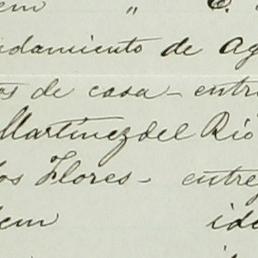 em " C.
ndamiento de Ag
os de casa - entre
Martinez del Rio
los Flores - entre
dem ide